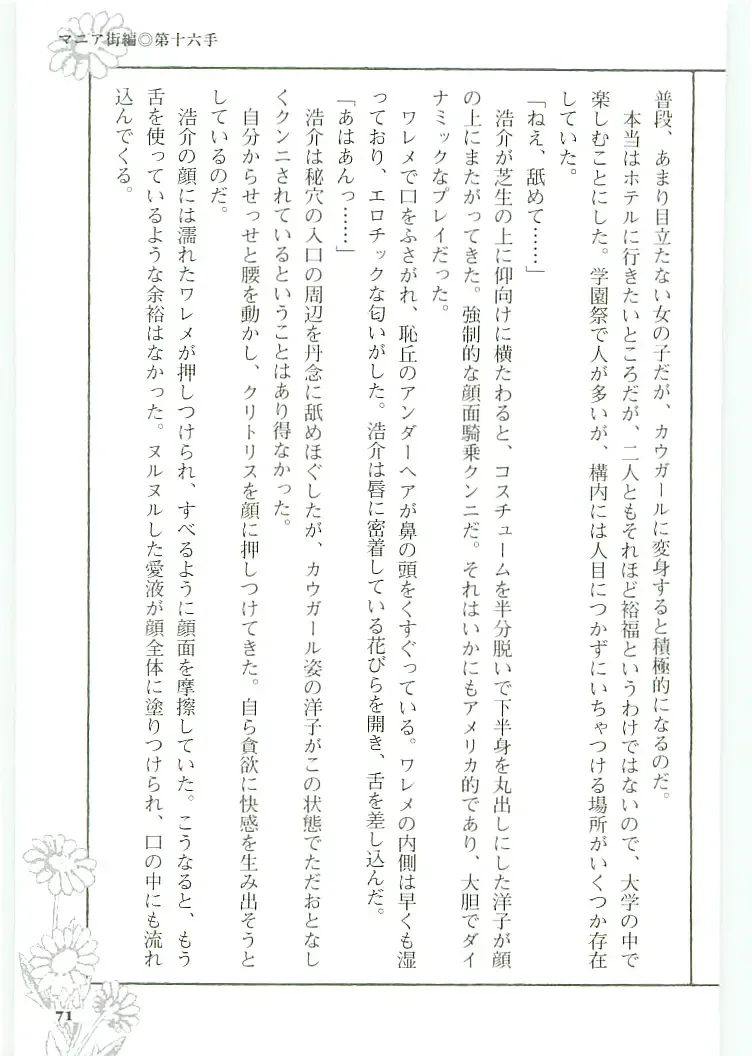 マニア街編◎第十六手
普段、あまり目立たない女の子だが、カウガールに変身すると積極的になるのだ。
本当はホテルに行きたいところだが、二人ともそれほど裕福というわけではないので、大学の中で
楽しむことにした。学園祭で人が多いが、構内には人目につかずにいちゃつける場所がいくつか存在
していた。
「ねえ、舐めて……」
浩介が芝生の上に仰向けに横たわると、コスチュームを半分脱いで下半身を丸出しにした洋子が顔
の上にまたがってきた。強制的な顔面騎乗クンニだ。それはいかにもアメリカ的であり、大胆でダイ
ナミックなプレイだった。
ワレメで口をふさがれ、恥丘のアンダーヘアが鼻の頭をくすぐっている。ワレメの内側は早くも湿
っており、エロチックな匂いがした。浩介は唇に密着している花びらを開き、舌を差し込んだ。
「あはあんっ……」
浩介は秘穴の入口の周辺を丹念に舐めほぐしたが、カウガール姿の洋子がこの状態でただおとなし
くクンニされているということはあり得なかった。
自分からせっせと腰を動かし、クリトリスを顔に押しつけてきた。自ら貪欲に快感を生み出そうと
しているのだ。
浩介の顔には濡れたワレメが押しつけられ、すべるように顔面を摩擦していた。こうなると、もう
舌を使っているような余裕はなかった。ヌルヌルした愛液が顔全体に塗りつけられ、口の中にも流れ
込んでくる。
71